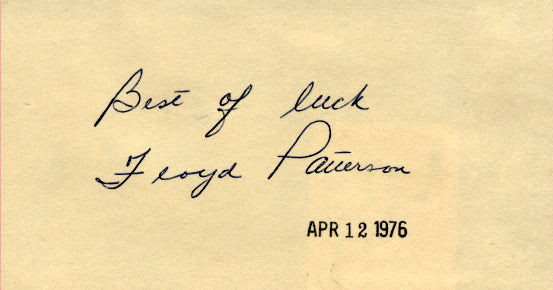 Best of luck
Floyd Patterson
APR 12 1976